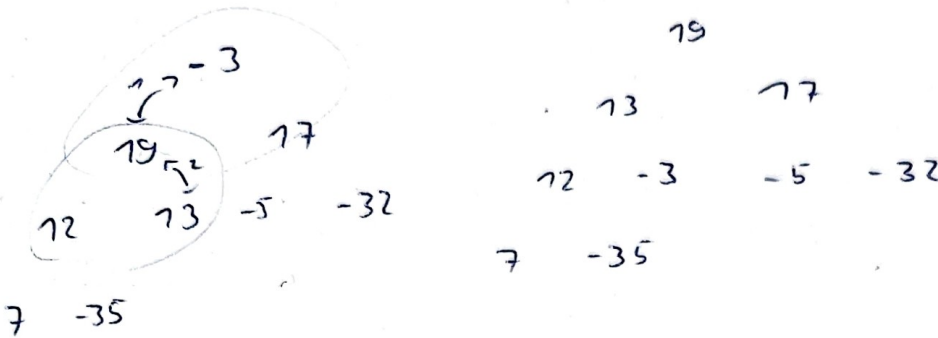 -3
19
17
12 13 -5 -32
7 -35
19
13 17
12 -3 -5 -32
7 -35